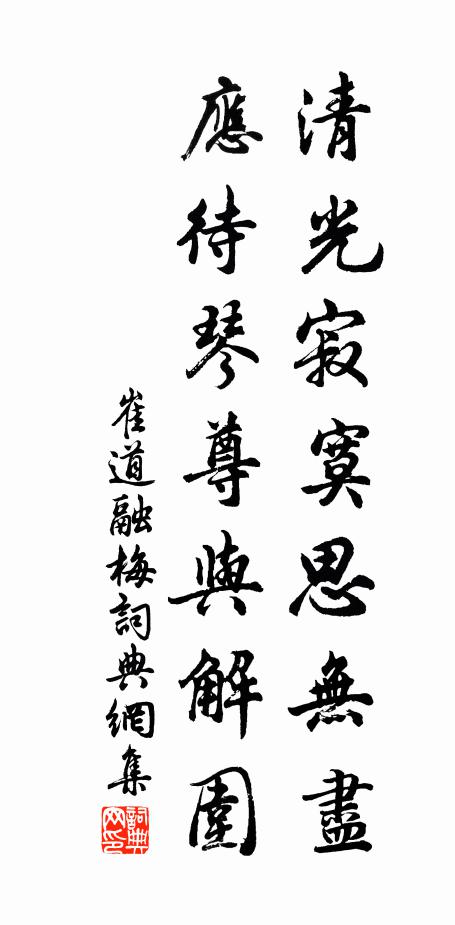 清光寂寞思無盡
應待琴尊與解圍
崔道融梅詞典網集
詞典网印